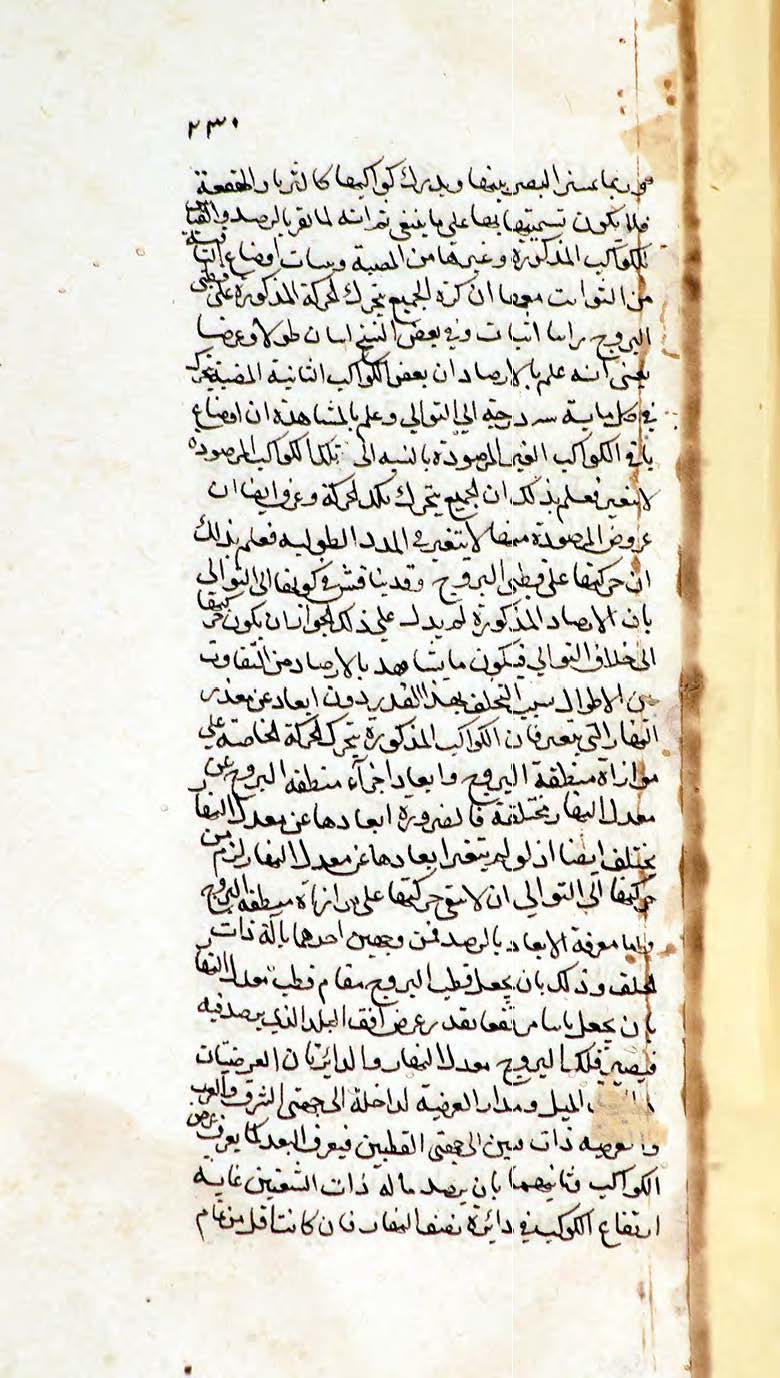 ٢٣٠
ربما يميز البصر بينها ويدرك كواكبها كالثريا والهقعة
فلا يكون تسميتها بها على ما ينبغي ثم انه لما تقرر بالرصد والقياس
للكواكب المذكورة وغيرها من المضية وثبات اوضاع الثابتة
من الثوابت معها ان كرة الجميع يتحرك الحركة المذكورة على قطبي
البروج اثبات وفي بعض النسخ طولا وعرضا
يعني انه علم بالارصاد ان بعض الكواكب الثانية المضية يتحرك
في كل ماية سه درجة الى التوالي وعلم بالمشاهدة ان اوضاع
باقي الكواكب الغير المرصودة بالنسبه الى تلك الكواكب المرصوده
لا يتغير فعلم بذلك ان الجميع يتحرك تلك الحركة وعرف ايضا ان
عروض المرصودة منها لا يتغير في المدد الطويله فعلم بذلك
ان حركتها على قطبي البروج وقد يناقش في كونها الى التوالى
بان الارصاد المذكورة لم يدل على ذلك لجواز ان يكون حركتها
الى خلاف التوالي فيكون ما يشاهد بالارصاد من التفاوت
في الاطوال سبب التخلف بهذا القدر دون ابعاد عن معدل
النهار التي يتغير فان الكواكب المذكورة يتحرك الحركة الخاصة على
موازاة منطقة البروج وابعاد اجزآء منطقة البروج عن
معدل النهار مختلفة فالضرورة ابعادها عن معدل النهار
يختلف ايضا اذ لو لم يتغير ابعادها عن معدل النهار لزم من
حركتها الى التوالي ان لا يبقى حركتها على موازاة منطقة البروج
واما معرفة الابعاد بالرصد فمن وجهين احدهما بآلة ذات
الحلق وذلك بان يجعل قطب البروج مقام قطب معدل النهار
بان يجعل مرتفعا بقدر عرض افق البلد الذي يرصد فيه
فيصير فلك البروج معدل النهار والدائرتان العرضيتان
الميل ومدار العرضية لداخلة الى جهتى الشرق والغرب
ذات ميين الى جهتى القطبين فيعرف البعد كما يعرف عرض
الكواكب وثانيهما بان يرصد بآلة ذات الشعبتين غاية
ارتفاع الكوكب في دائرة نصف النهار فان كانت اقل من تمام